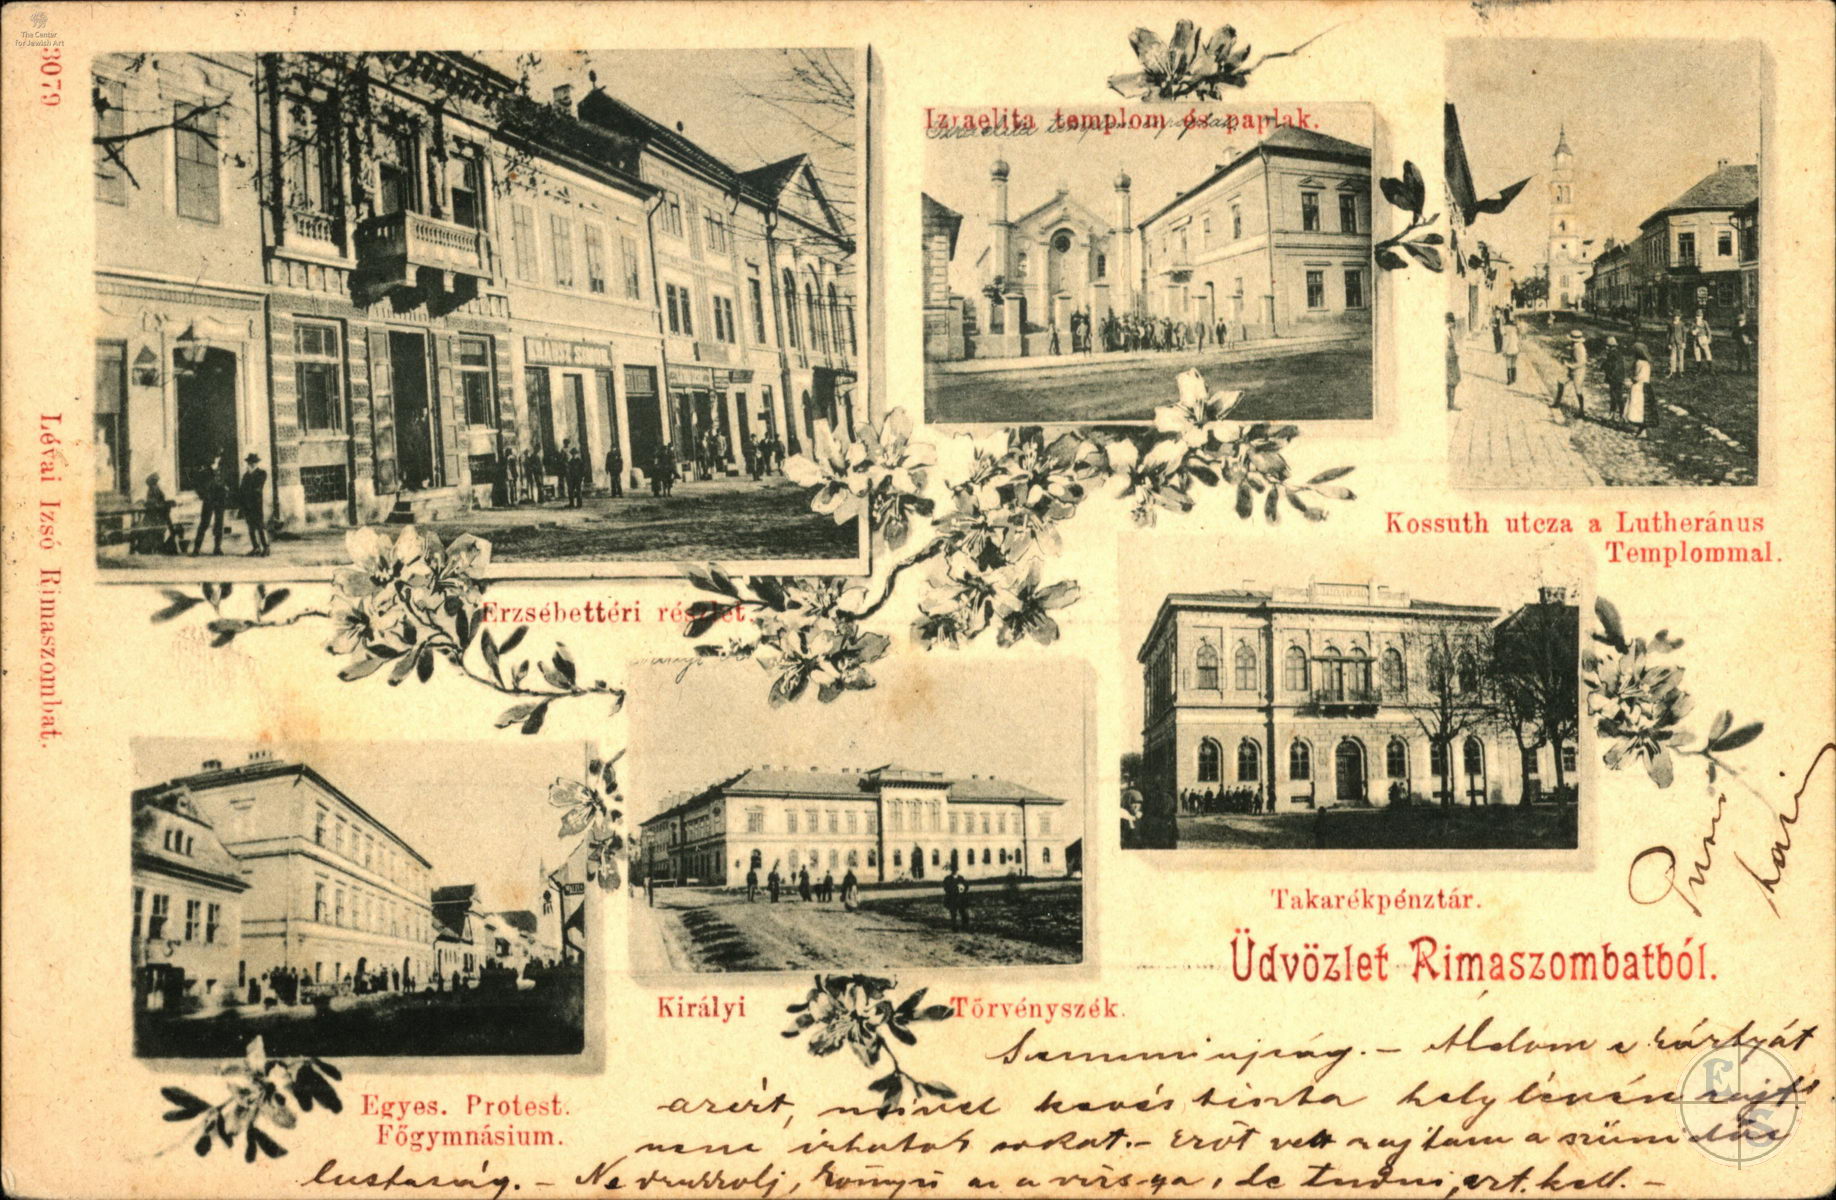 The Center
for Jewish Art
3079
Lévai Izsó Rimaszombat.
Izraelita templom és paplak.
Kossuth utcza a Lutheránus
Templommal.
Erzsébettéri részlet.
Takarékpénztár.
Üdvözlet Rimaszombatból.
Királyi Törvényszék.
Egyes. Protest.
Főgymnásium.
Semmi ujság. - Áldom a kártyát
azért, mivel kevés tiszta hely lévén rajt
nem irhatok sokat. - Erőt vett rajtam a szünidői
lustaság. - Ne drukkolj, könnyű az a vizsga, de tudni azt kell. -
E S